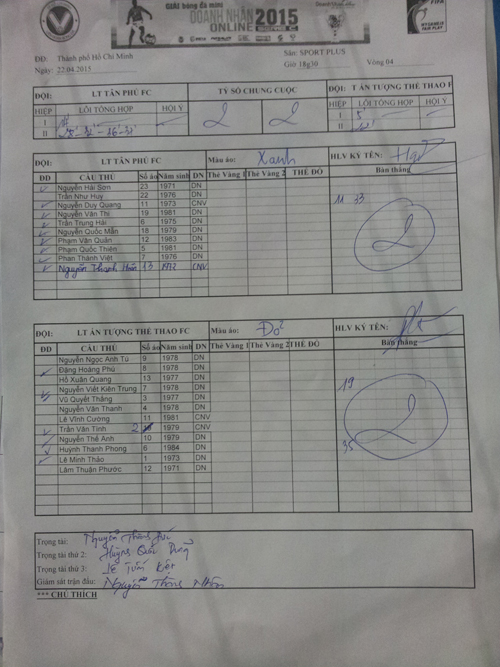 GIẢI bóng đá mini
DOANH NHÂN 2015
ONLINE
FIFA
FAIR PLAY
ĐĐ: Thành phố Hồ Chí Minh
Sân: SPORT PLUS
Ngày: 22.04.2015
Giờ 18g30 Vòng 04
ĐỘI: LT TÂN PHÚ FC
TỶ SỐ CHUNG CUỘC
ĐỘI: T ẤN TƯỢNG THỂ THAO F
HIỆP LỖI TỔNG HỢP HỘI Ý
2 2
HIỆP LỖI TỔNG HỢP HỘI Ý
I
I 5
II
II
ĐỘI: LT TÂN PHÚ FC Màu áo: Xanh HLV KÝ TÊN:
ĐD CẦU THỦ Số áo Năm sinh DN Thẻ Vàng 1 Thẻ Vàng 2 THẺ ĐỎ Bàn thắng
Nguyễn Hải Sơn 23 1971 DN
Trần Như Huy 22 1976 DN
Nguyễn Duy Quang 11 1973 CNV
Nguyễn Văn Thi 19 1981 DN
Trần Trung Hải 6 1975 DN
Nguyễn Quốc Mẫn 18 1979 DN
Phạm Văn Quân 12 1983 DN
Phạm Quốc Thiện 5 1981 DN
Phan Thành Việt 7 1976 DN
Nguyễn Thanh 13 1972 CNV
11 33
2
ĐỘI: LT ẤN TƯỢNG THỂ THAO FC Màu áo: Đỏ HLV KÝ TÊN:
ĐD CẦU THỦ Số áo Năm sinh DN Thẻ Vàng 1 Thẻ Vàng 2 THẺ ĐỎ Bàn thắng
Nguyễn Ngọc Anh Tú 9 1978 DN
Đặng Hoàng Phú 8 1978 DN
Hồ Xuân Quang 13 1977 DN
Nguyễn Viết Kiên Trung 7 1978 DN
Vũ Quyết Thắng 3 1977 DN
Nguyễn Văn Thanh 4 1978 DN
Lê Vĩnh Cường 11 1981 CNV
Trần Văn Tính 2 1979 CNV
Nguyễn Thế Anh 10 1979 DN
Huỳnh Thanh Phong 6 1984 DN
Lê Minh Thảo 1 1973 DN
Lâm Thuận Phước 12 1971 DN
19
2
35
Trọng tài: Nguyễn
Trọng tài thứ 2: Huỳnh Quốc
Trọng tài thứ 3: Lê Tuấn
Giám sát trận đấu: Nguyễn Thông
*** CHÚ THÍCH